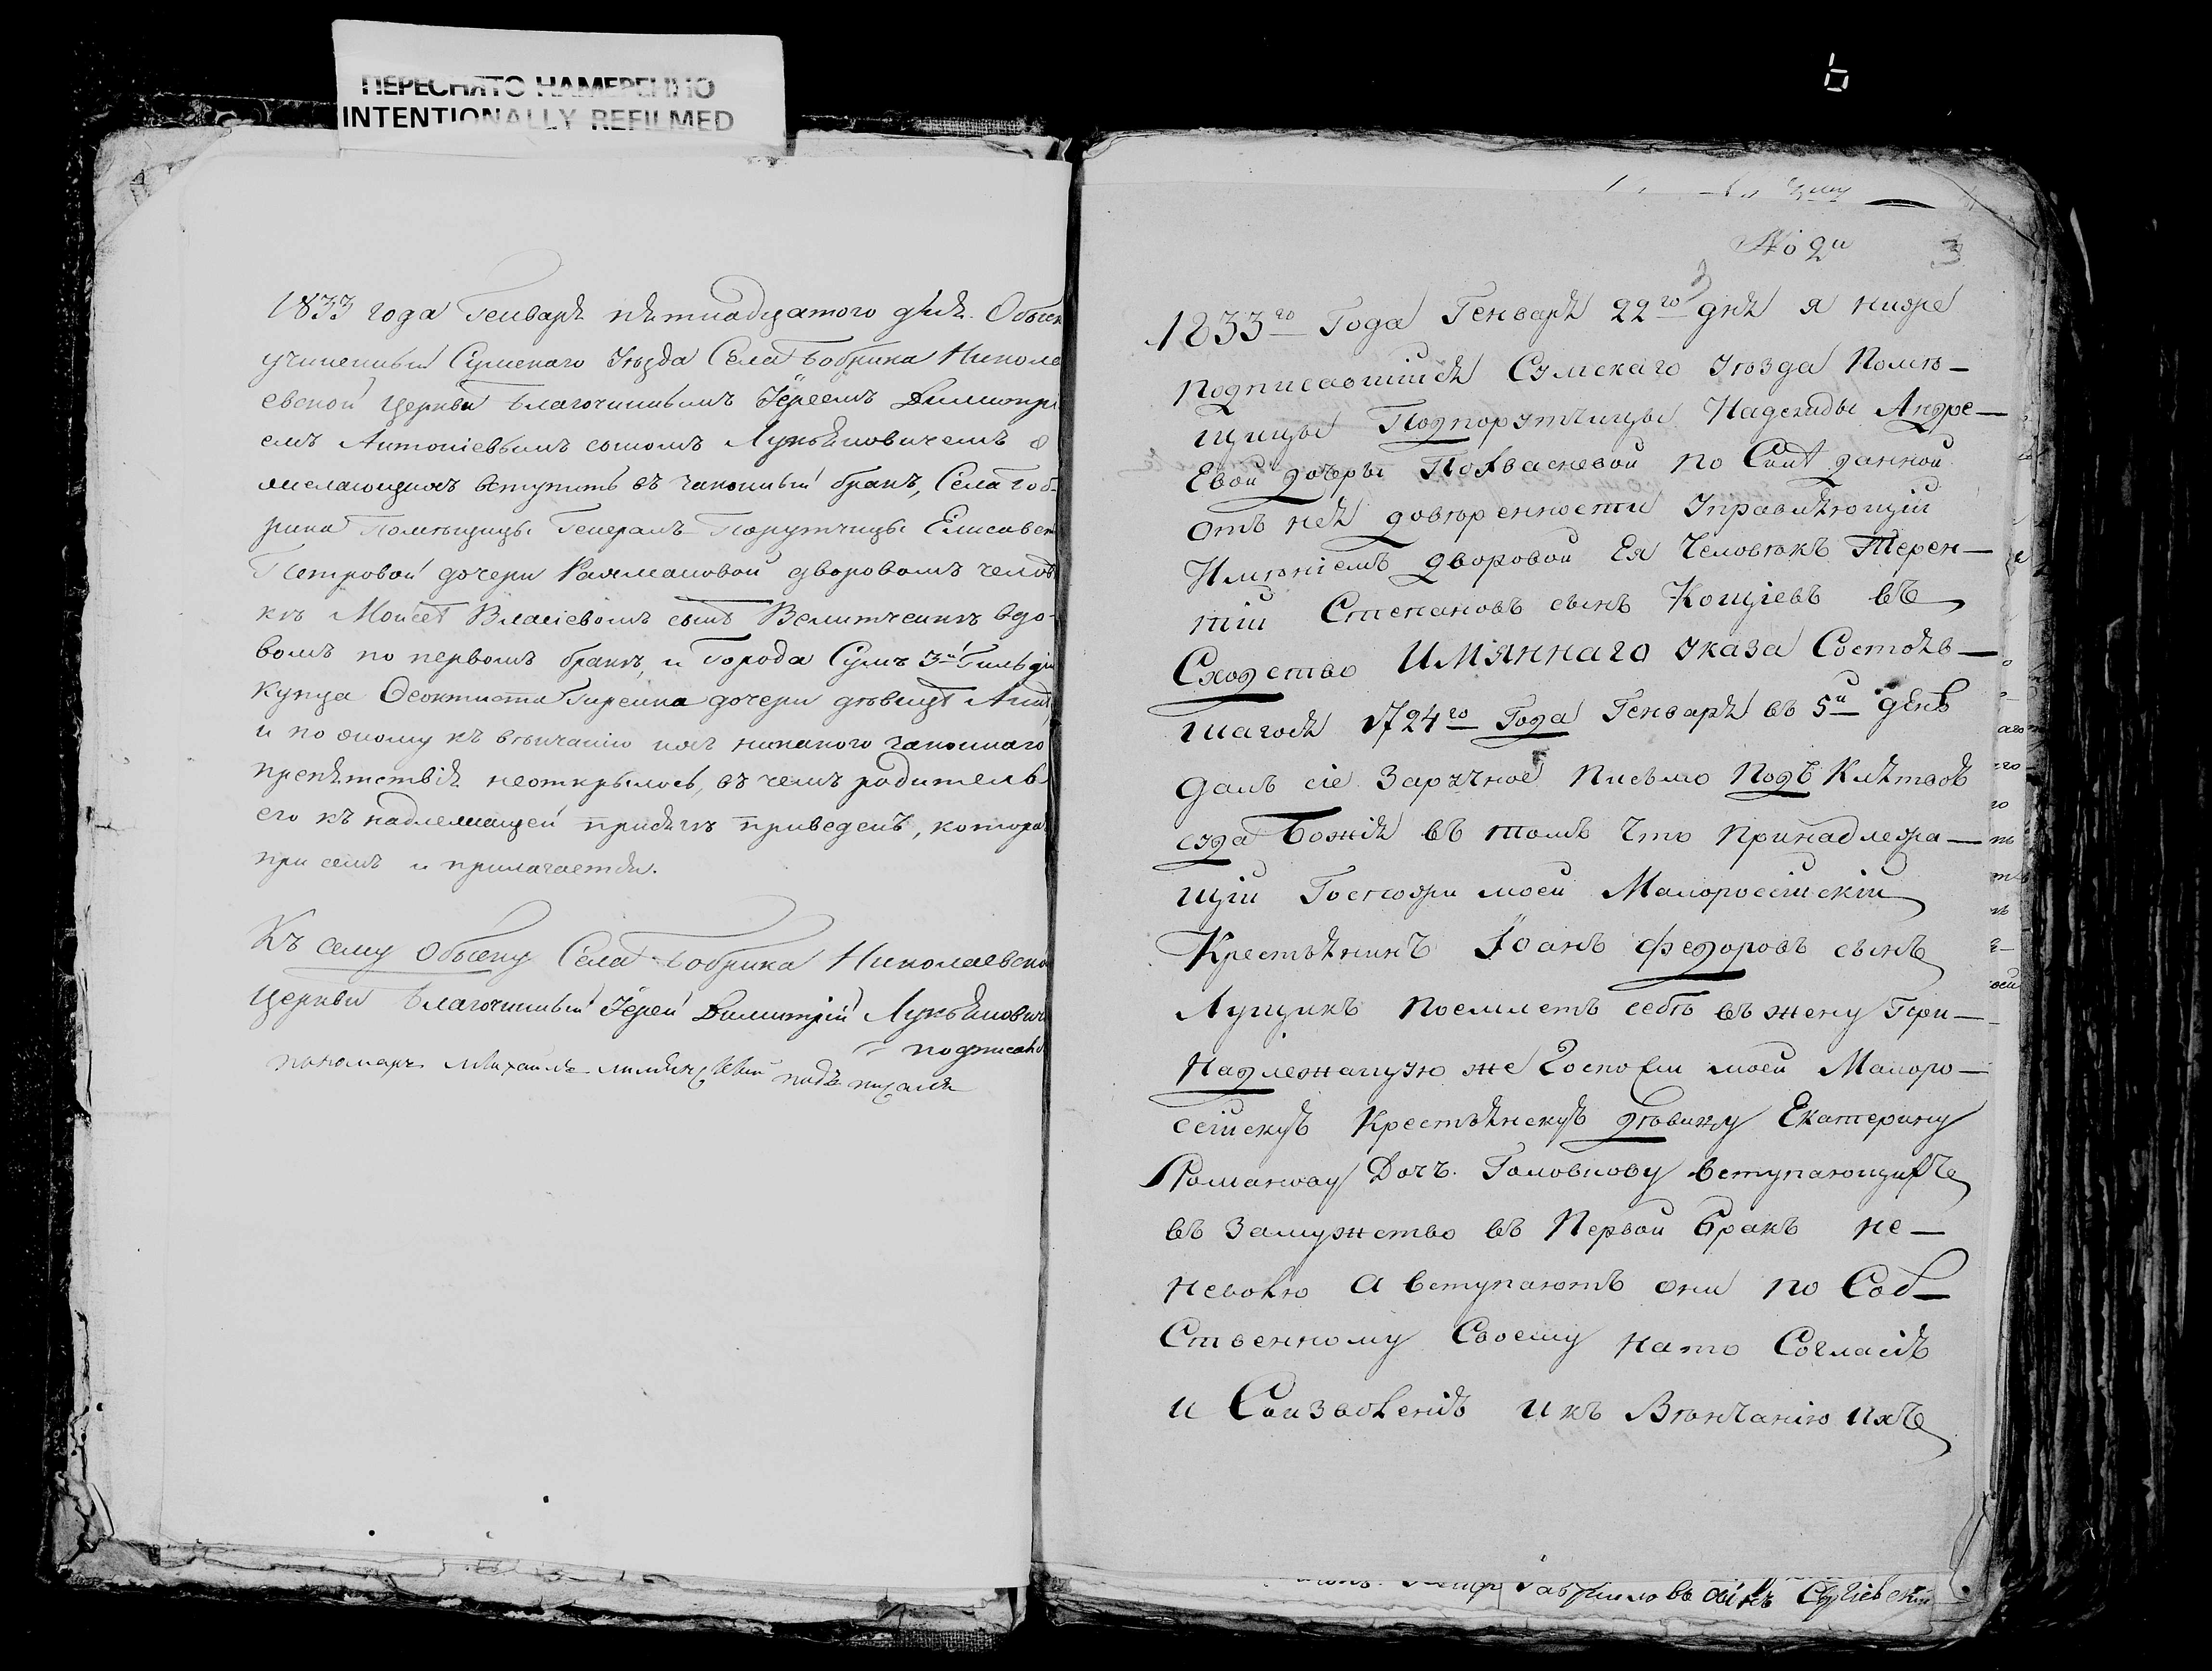 ПЕРЕСНЯТО НАМЕРЕННО
INTENTIONALLY REFILMED
1833 года Генваря пятнадцатого дня. Обыск
учиненный Сумскаго Уезда Села Бобрика Никола
евской Церкви Благочиннымъ Іереемъ Димитрі
емъ Антоніевымъ сыномъ Лукьяновичемъ о
желающихъ вступить въ законный бракъ, Села Боб-
рика Помѣщицы Генералъ-Порутчицы Елисавет
Петровой дочери дворовомъ человѣ
кѣ Моисеѣ Власіевомъ сынѣ вдо-
вомъ по первомъ бракѣ, и Города Сумъ 3й Гильдіи
Купца Ѳеоктиста дочери дѣвицѣ
и по оному къ вѣнчанію ихъ никакого законнаго
препятствія неоткрылось, въ чемъ родитель
его къ надлежащей присягѣ приведенъ, котора
при семъ и прилагается.
Къ сему Обыску Села Бобрика Николаевской
Церкви Благочинный Іерей Димитрій Лукьянович
подписался
пономарь Михаилъ подъписался
№ 2й
3
1833го Года Генваря 22го дня я ниже
подписавшійся Сумскаго Уѣзда Помѣ—
щицы Подпорутчицы Надежды Андре—
Евой дочеры по Силѣ данной
отъ нея довѣренности Управляющій
Имѣніемъ дворовой Ея Человѣкъ Терен—
тій Степановъ сынъ Кощіевъ въ
Сходство ИМЯннаго указа Состояв—
шагося 1724го Года Генваря въ 5й день
далъ сіе Заручное Письмо Подъ Клятвоъ
суда Божія въ томъ что принадлежа—
щій Госпожи моей Малоросссійскій
Крестьянинъ Іоанъ федоровъ сынъ
Лущикъ поемлетъ себѣ въ жену При—
надлежащую же Госпожи моей Малоро—
сійскуъ Крестьянскуъ дѣвицу Екатерину
Романову Дочъ Головкову вступающихъ
въ Замужство въ Первой Бракъ не—
неволю а вступаютъ они по Соб—
Ственному Своему нато Согласіъ
и Соизволеніъ и къ Вѣнчанію ихъ
Гавриловъ сынъ